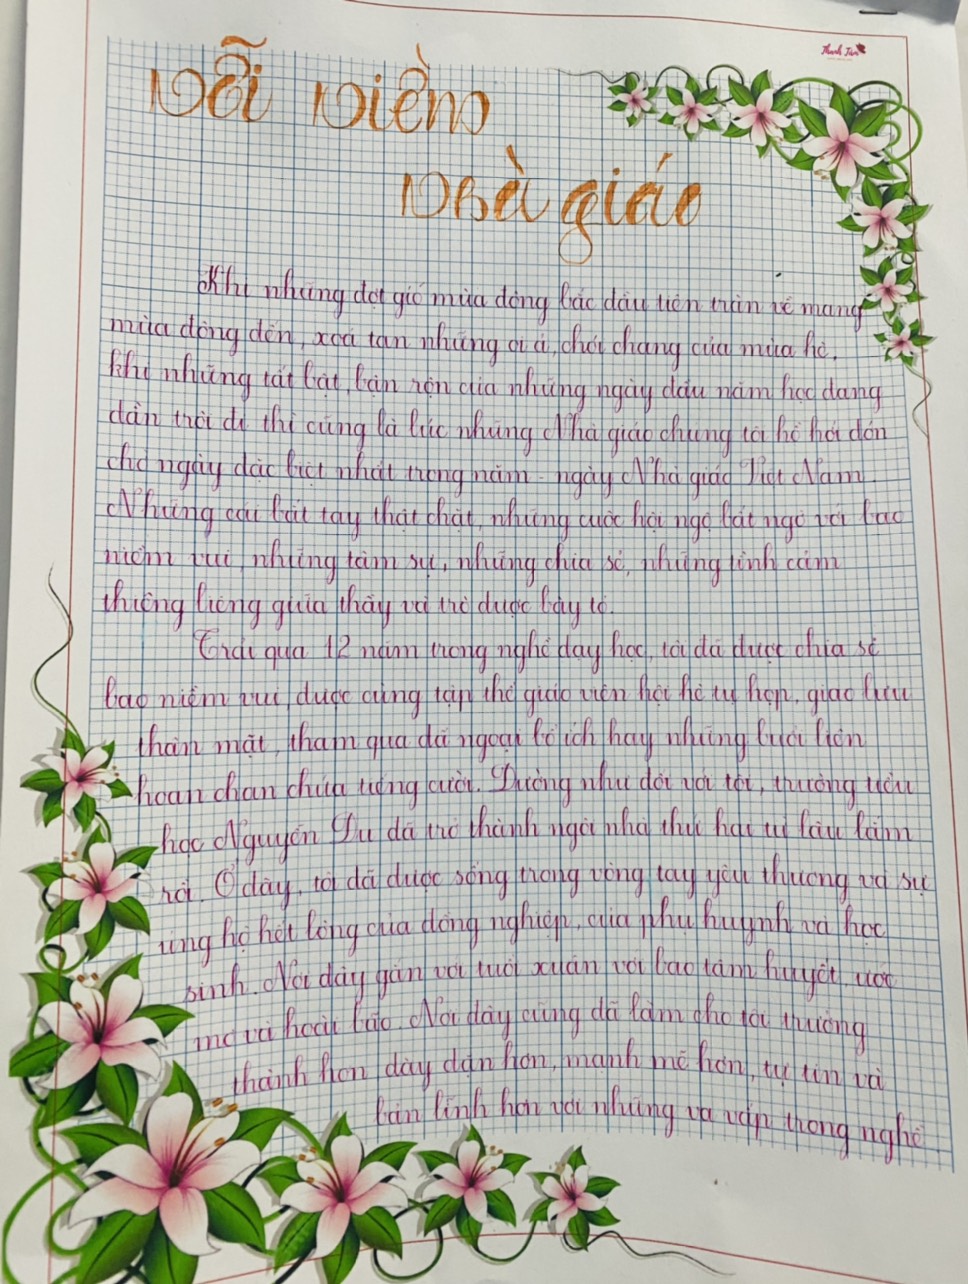 Thanh Tâm
Nỗi niềm
Nhà giáo
Khi những đợt gió mùa đông bắc đầu tiên tràn về mang
mùa đông đến, xoá tan những oi ả, chói chang của mùa hè.
Khi những tất bật, bận rộn của những ngày đầu năm học đang
dần trôi đi thì cũng là lúc những Nhà giáo chúng tôi hồ hởi đón
chờ ngày đặc biệt nhất trong năm - ngày Nhà giáo Việt Nam.
Những cái bắt tay thật chặt, những cuộc hội ngộ bất ngờ với bao
niềm vui, những tâm sự, những chia sẻ, những tình cảm
thiêng liêng giữa thầy và trò được bày tỏ.
Trải qua 12 năm trong nghề dạy học, tôi đã được chia sẻ
bao niềm vui, được cùng tập thể giáo viên hội hè tụ họp, giao lưu
thân mật, tham qua dã ngoại bổ ích hay những buổi liên
hoan chan chứa tiếng cười. Dường như đối với tôi, trường tiểu
học Nguyễn Du đã trở thành ngôi nhà thứ hai từ lâu lắm
rồi. Ở đây, tôi đã được sống trong vòng tay yêu thương và sự
ủng hộ hết lòng của đồng nghiệp, của phụ huynh và học
sinh. Nơi đây gắn với tuổi xuân với bao tâm huyết, ước
mơ và hoài bão. Nơi đây cũng đã làm cho tôi trưởng
thành hơn, dày dặn hơn, mạnh mẽ hơn, tự tin và
bản lĩnh hơn với những va vấp trong nghề